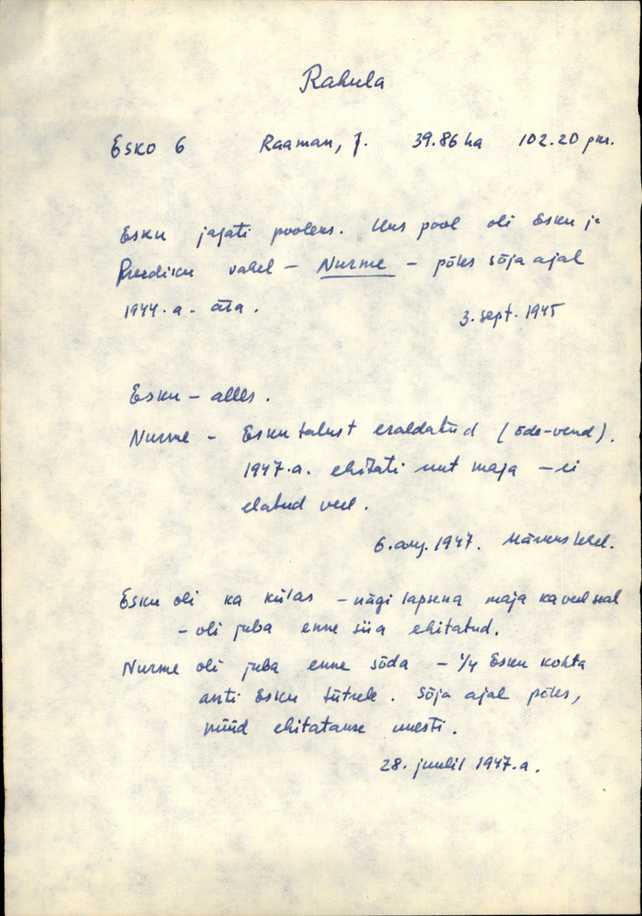 Rahula
Esko 6 Raaman, J. 39.86 ha 102.20 pm.
Esku jagati pooleks. Uus pool oli Esku ja
Preediku vahel – Nurme – põles sõja ajal
1944.a. ära.
3. sept. 1945
Esku – alles.
Nurme – Esku talust eraldatud (õde-vend).
1947.a. ehitati uut maja – ei
elatud veel.
6. aug. 1947.
Esku oli ka külas – nägi lapsena maja ka veel seal
– oli juba enne siia ehitatud.
Nurme oli juba enne sõda – 1/4 Esku kohta
anti Esku tütrele. Sõja ajal põles,
nüüd ehitatakse uuesti.
28. juulil 1947.a.